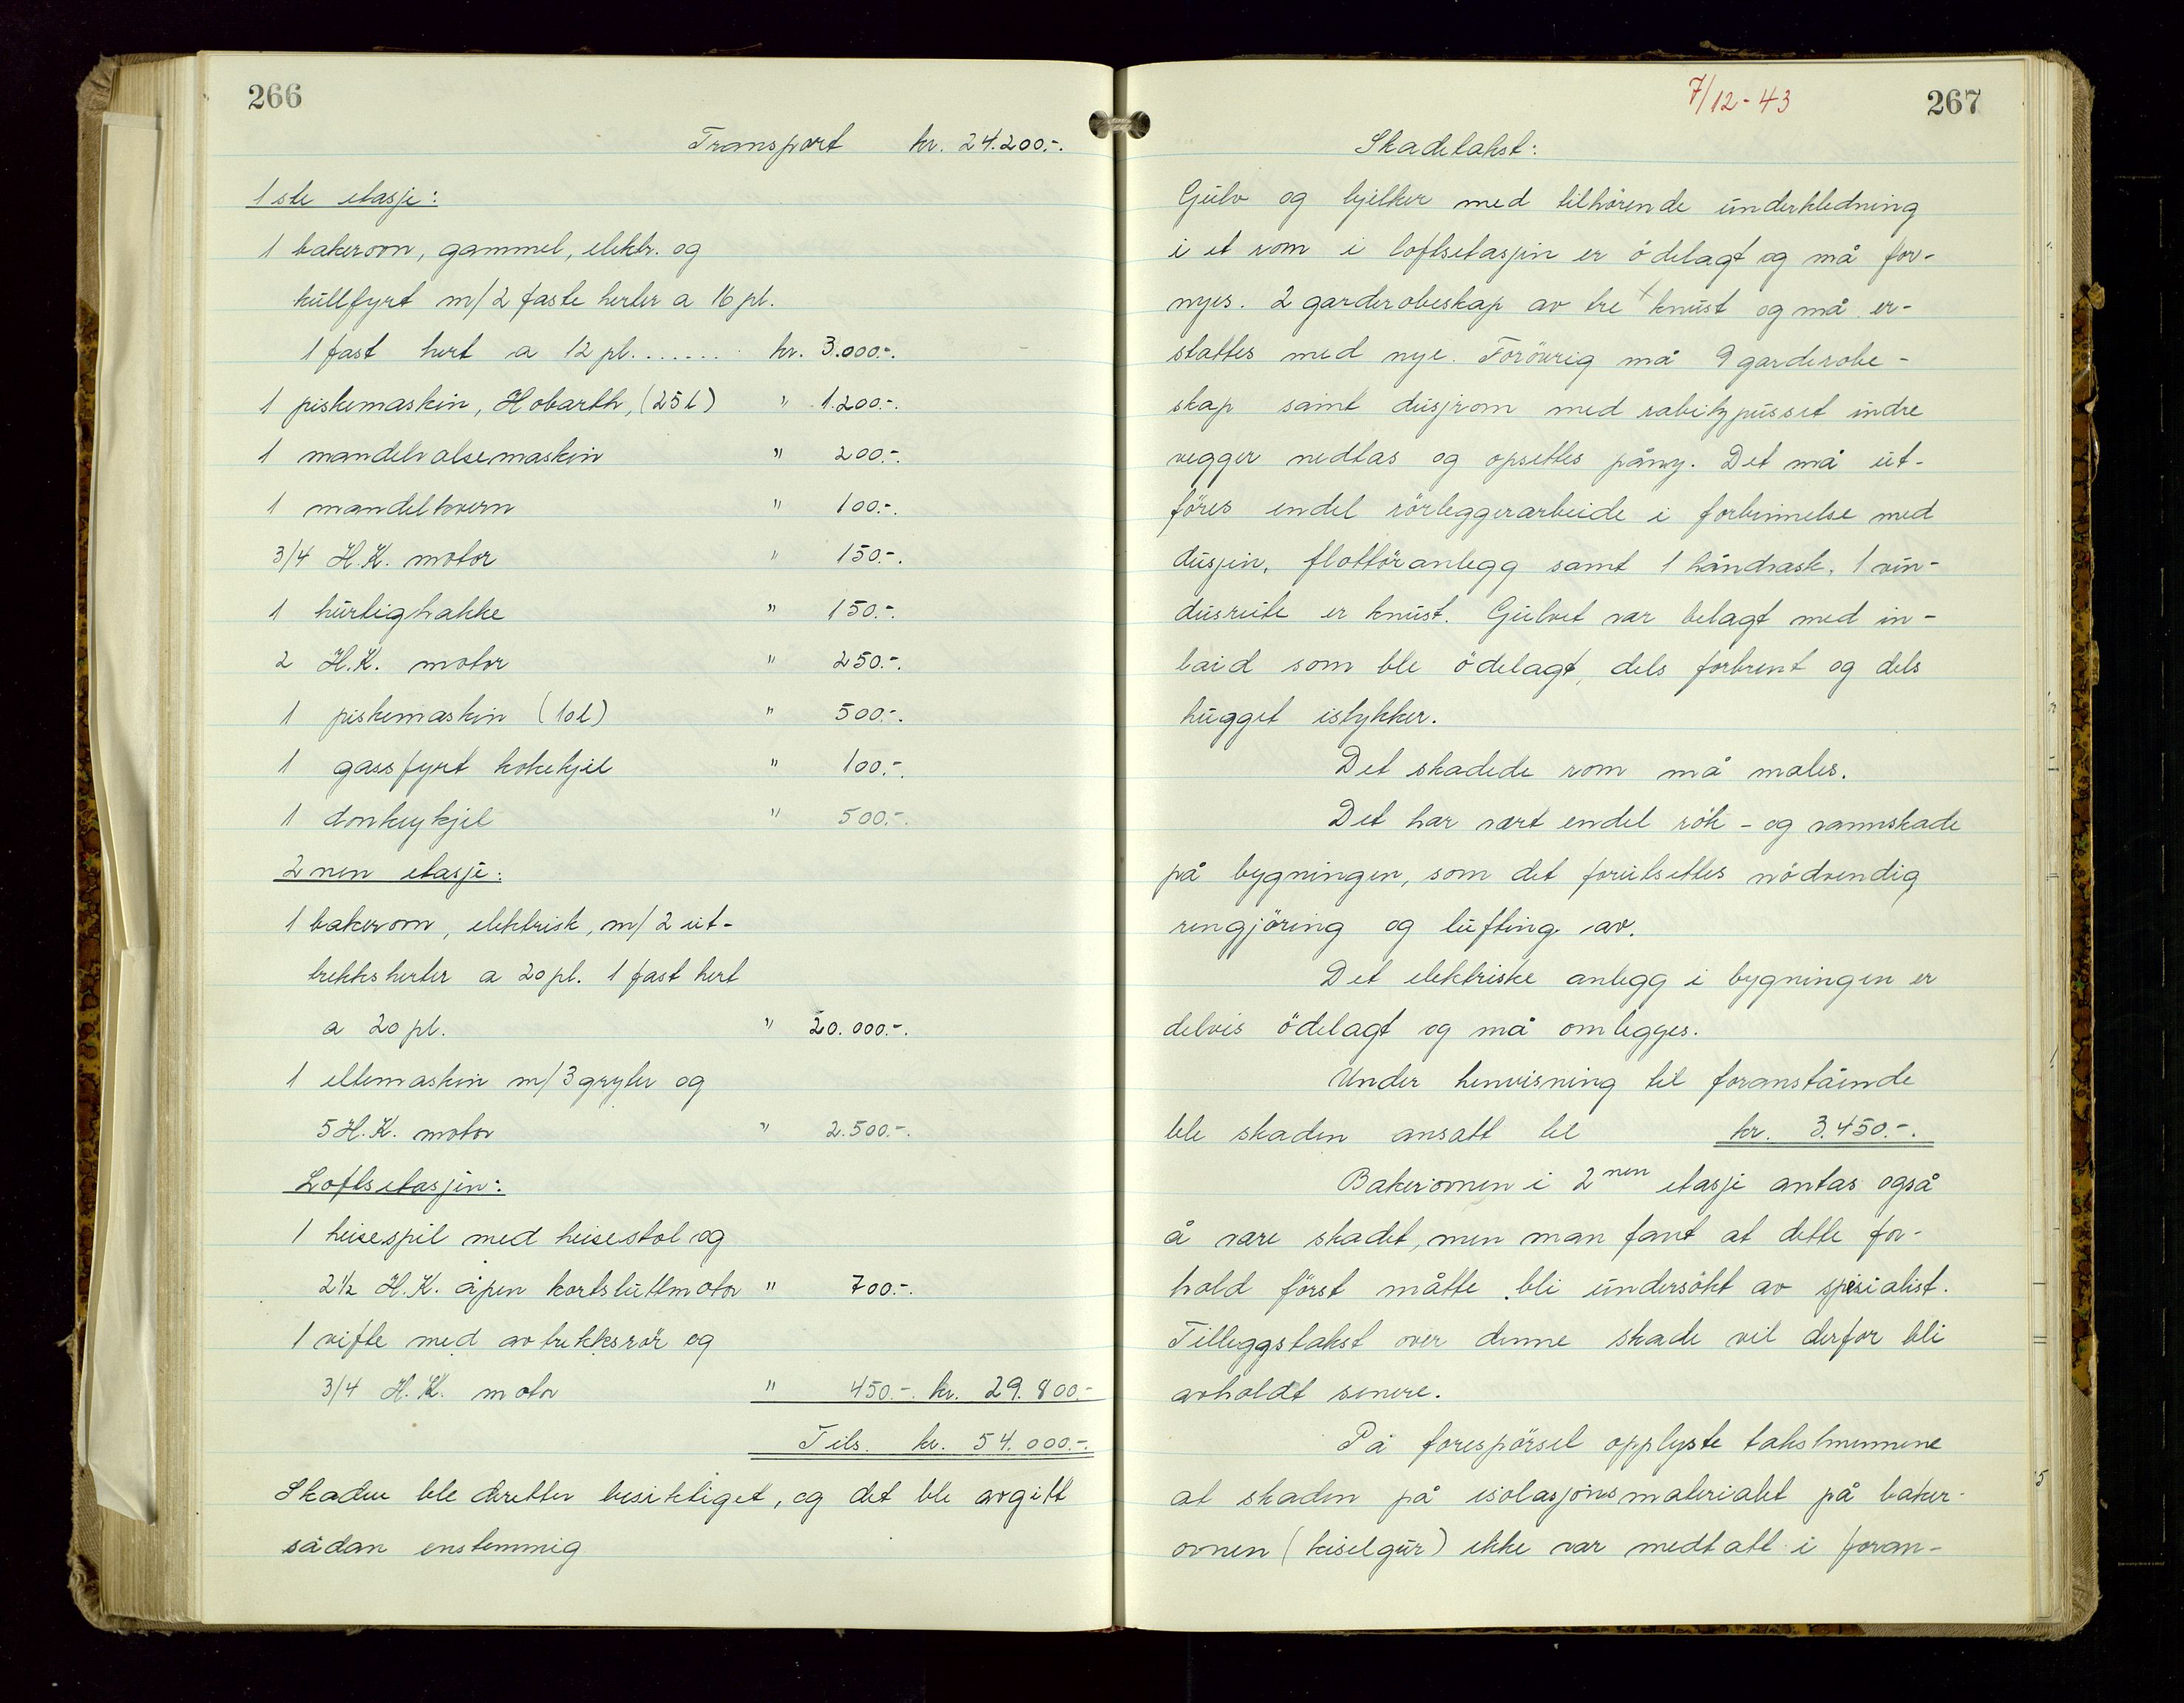 266
Transport kr. 24.200.-.
1ste etasje:
1 bakerovn, gammel, elektr. og
kullfyrt m/2 faste herter a 16 pl.
1 fast hert a 12 pl. ...... kr. 3.000.-.
1 piskemaskin, Hobarth, (25 l) " 1.200.-.
1 mandelvalsemaskin " 200.-.
1 mandelkvern " 100.-.
3/4 H.K. motor " 150.-.
1 hurtighakke " 150.-.
2 H.K. motor " 250.-.
1 piskemaskin (10 l) " 500.-.
1 gassfyrt kokekjel " 100.-.
1 donkeykjel " 500.-.
2nen etasje:
1 bakerovn, elektrisk, m/2 ut-
trekksherter a 20 pl. 1 fast hert
a 20 pl. " 20.000.-.
1 eltemaskin m/3 gryter og
5 H.K. motor " 2.500.-.
Loftsetasjen:
1 heisespil med heisestol og
2½ H.K. åpen kortsluttmotor " 700.-.
1 vifte med avtrekksrör og
3/4 H.K. motor " 450.-. kr. 29.800.-
Tils. kr. 54.000.-.
Skaden ble deretter besiktiget, og det ble avgitt
sådan enstemmig
7/12-43
267
Skadetakst:
Gulv og bjelker med tilhörende underkledning
i et rom i loftsetasjen er ödelagt og må for-
nyes. 2 garderobeskap av tre knust og må er-
stattes med nye. Forövrig må 9 garderobe-
skap samt dusjrom med rabitzpusset indre
vegger nedtas og opsettes påny. Det må ut-
föres endel rörleggerarbeide i forbinnelse med
dusjen, flottöranlegg samt 1 håndvask, 1 vin-
dusrute er knust. Gulvet var belagt med in-
laid som ble ödelagt, dels forbrent og dels
hugget istykker.
Det skadede rom må males.
Det har vært endel rök- og vannskade
på bygningen, som det forutsettes nödvendig
rengjöring og lufting av.
Det elektriske anlegg i bygningen er
delvis ödelagt og må omlegges.
Under henvisning til foranstående
ble skaden ansatt til kr. 3.450.-.
Bakerovnen i 2nen etasje antas også
å være skadet, men man fant at dette for-
hold först måtte bli undersökt av spesialist.
Tilleggstakst over denne skade vil derfor bli
avholdt senere.
På forespörsel opplyste takstmennene
at skaden på isolasjonsmaterialet på baker-
ovnen (kiselgur) ikke var medtatt i foran-